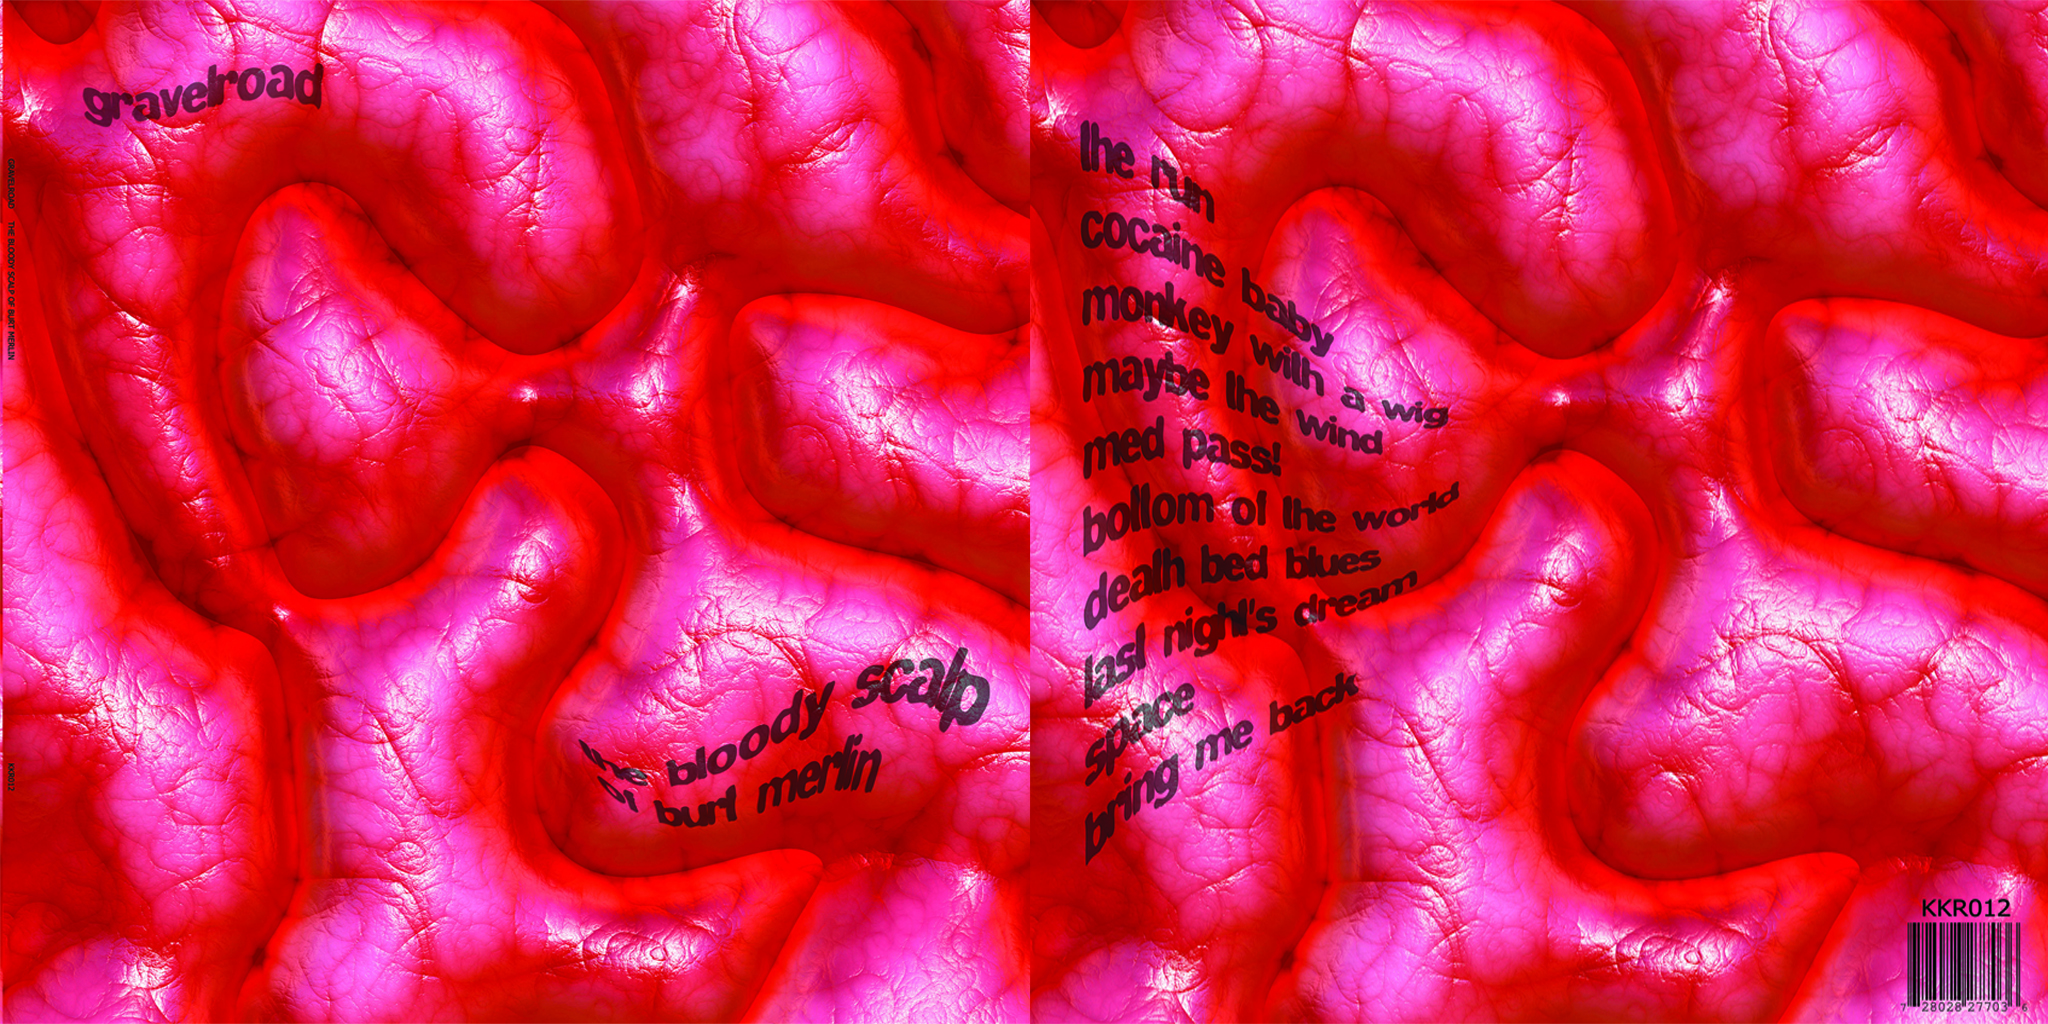 gravelroad
GRAVELROAD THE BLOODY SCALP OF BURT MERLIN
the bloody scalp
of burt merlin
KKR012
the run
cocaine baby
monkey with a wig
maybe the wind
med pass!
bottom of the world
death bed blues
last night's dream
space
bring me back
KKR012
7 28028 27703 6